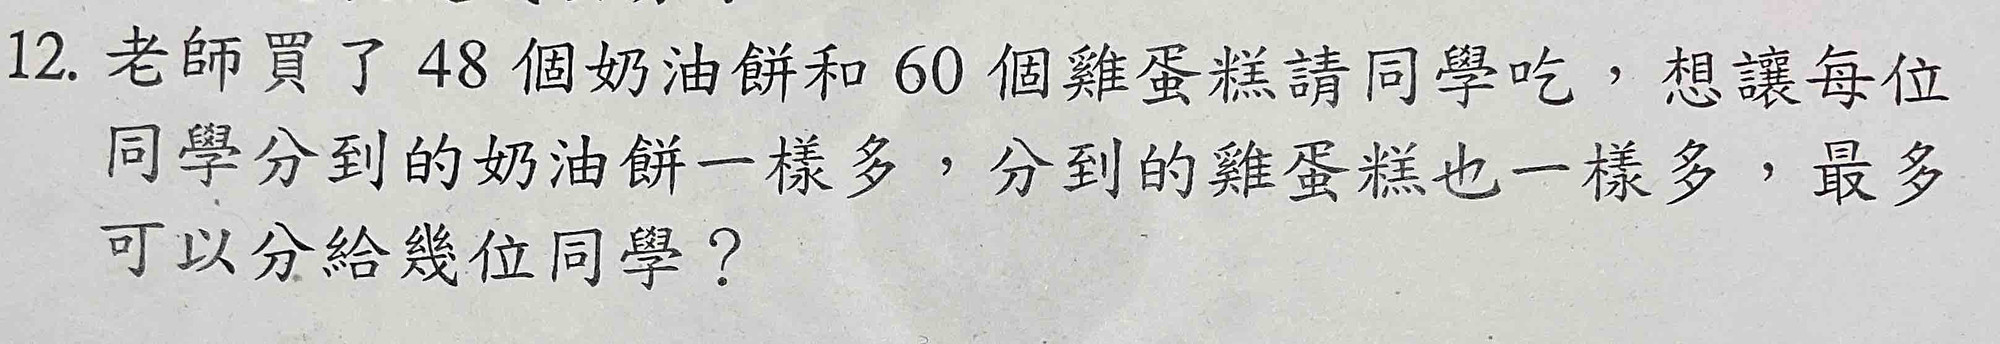 12. 老師買了 48 個奶油餅和 60 個雞蛋糕請同學吃，想讓每位
同學分到的奶油餅一樣多，分到的雞蛋糕也一樣多，最多
可以分給幾位同學？